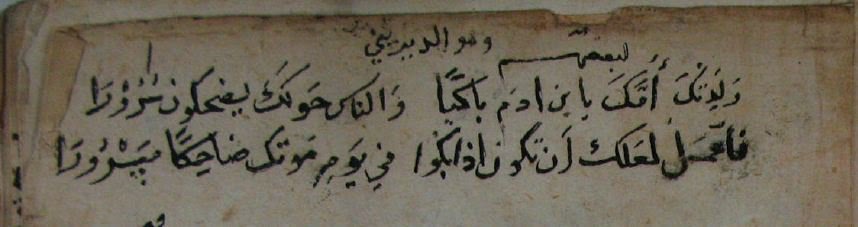 وهو الديريني
لبعضهم
ولدتك أمك يا بن ادم باكيًا والناس حولك يضحكون سرورا
فاعمل لعلك أن تكون اذا بكوا في يوم موتك ضاحكًا مسرورا